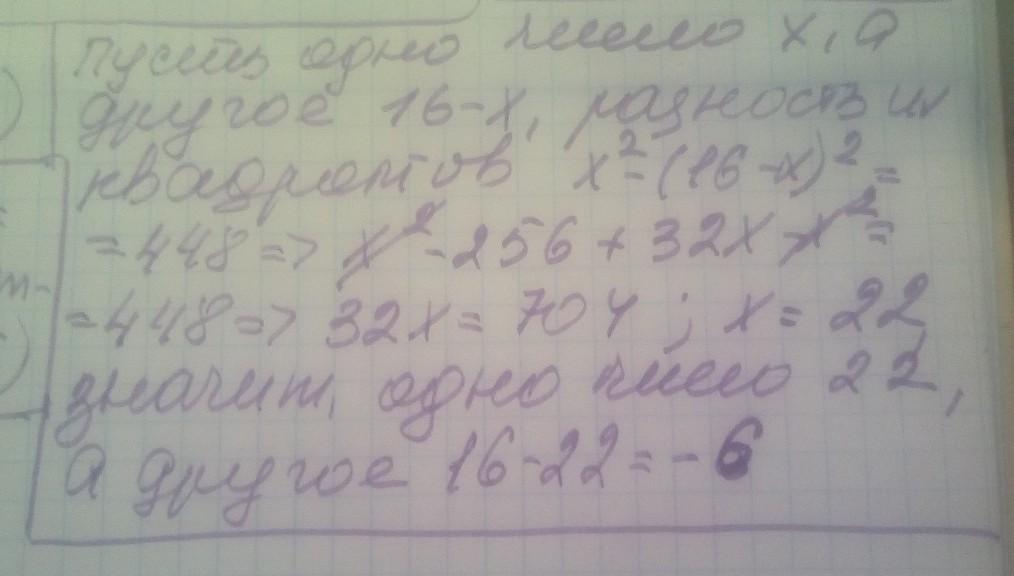 Пусть одно число x, а
другое 16-x, разность их
квадратов x²-(16-x)²=
=448=> x²-256+32x-x²=
=448=> 32x=704; x=22
значит, одно число 22,
а другое 16-22=-6